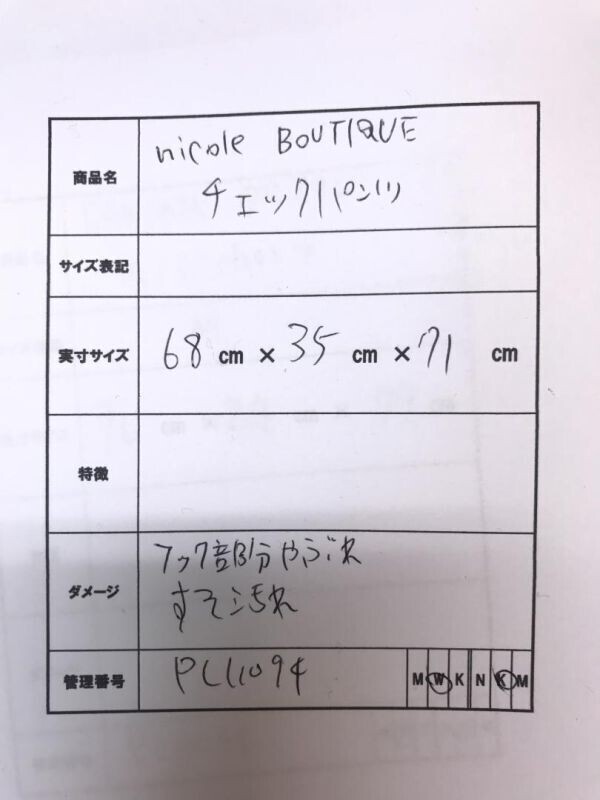 商品名 nicole BOUTIQUE
チェックパンツ
サイズ表記
実寸サイズ 68 cm × 35 cm × 71 cm
特徴
ダメージ フック部分やぶれ
すそ汚れ
管理番号 PCL11094 M W K N K M